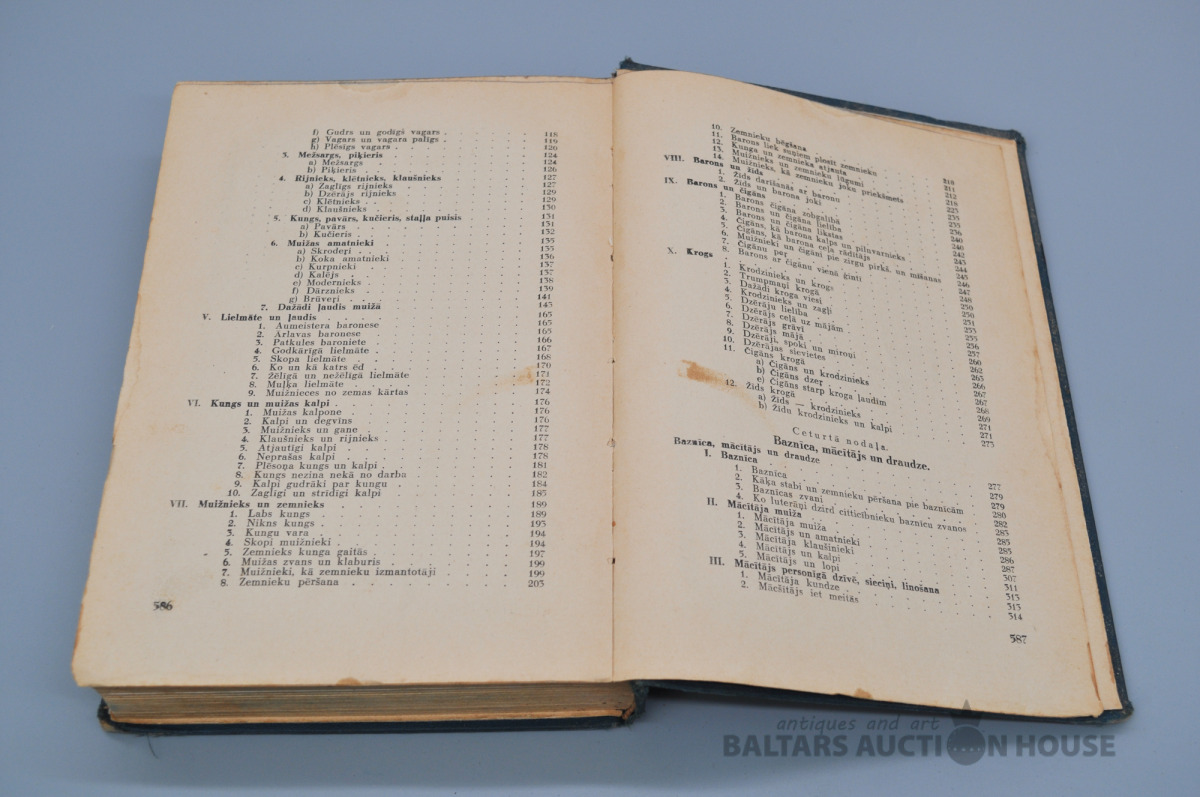 f) Gudrs un godīgš vagars 118
g) Vagars un vagara palīgs 119
h) Plēsīgs vagars 120
3. Mežsargs, piķieris 124
a) Mežsargs 124
b) Piķieris 126
4. Rijnieks, klētnieks, klaušnieks 127
a) Zaglīgs rijnieks 127
b) Dzērājs rijnieks 129
c) Klētnieks 129
d) Klaušnieks 130
5. Kungs, pavārs, kučieris, staļļa puisis 131
a) Pavārs 131
b) Kučieris 132
6. Muižas amatnieki 135
a) Skroderi 135
b) Koka amatnieki 136
c) Kurpnieki 137
d) Kalējs 137
e) Modernieks 138
f) Dārznieks 139
g) Brūveri 141
7. Dažādi ļaudis muižā 143
V. Lielmāte un ļaudis 165
1. Aumeistera baronese 165
2. Ārlavas baronese 165
3. Patkules baroniete 166
4. Godkārīgā lielmāte 167
5. Skopa lielmāte 168
6. Ko un kā katrs ēd 170
7. Žēlīgā un nežēlīgā lielmāte 171
8. Muļķa lielmāte 172
9. Muižnieces no zemas kārtas 174
VI. Kungs un muižas kalpi 176
1. Muižas kalpone 176
2. Kalpi un degvīns 176
3. Muižnieks un gane 177
4. Klaušnieks un rijnieks 177
5. Atjautīgi kalpi 178
6. Neprašas kalpi 178
7. Plēsoņa kungs un kalpi 181
8. Kungs nezina nekā no darba 182
9. Kalpi gudrāki par kungu 184
10. Zaglīgi un strīdīgi kalpi 185
VII. Muižnieks un zemnieks 189
1. Labs kungs 189
2. Nikns kungs 193
3. Kungu vara 194
4. Skopi muižnieki 194
5. Zemnieks kunga gaitās 197
6. Muižas zvans un klaburis 199
7. Muižnieki, kā zemnieku izmantotāji 199
8. Zemnieku pēršana 203
586
10. Zemnieku bēgšana
11. Barons liek suņiem plosīt zemnieku 210
12. Kungs un zemnieks atjauta 211
13. Muižnieks un zemnieks lūgumi 212
14. Muižnieks, kā zemnieku joku priekšmets 218
VIII. Barons un žīds 225
1. Žīds darīšanās ar baronu 235
2. Žīds un barona joki 235
IX. Barons un čigāns 236
1. Barons čigāna zobgalībā 240
2. Barons un čigāna lielība 240
3. Barons un čigāna likstas 242
4. Čigāns, kā barona kalps un pilnvarnieks 243
5. Čigāns, kā barona ceļa rādītājs 244
6. Muižnieki un čigāni pie zirgu pirkš. un mīšanas 245
7. Čigānu per 246
8. Barons ar čigānu vienā ģintī 247
X. Krogs 248
1. Krodzinieks un krogs 250
2. Trumpmaņi krogā 250
3. Dažādi kroga viesi 251
4. Krodzinieks un zagļi 253
5. Dzērāju lielība 255
6. Dzērājs ceļā uz mājām 256
7. Dzērājs grāvī 257
8. Dzērājs mājā 260
9. Dzērāji, spoki un miroņi 262
10. Dzērājas sievietes 265
11. Čigāns krogā 266
a) Čigāns un krodzinieks 267
b) Čigāns dzer 267
c) Čigāns starp kroga ļaudīm 268
12. Žīds krogā 269
a) Žīds — krodzinieks 271
b) Žīdu krodzinieks un kalpi 271
273
Ceturtā nodaļa.
Baznīca, mācītājs un draudze.
Baznīca, mācītājs un draudze
I. Baznīca 277
1. Baznīca 279
2. Kāķa stabi un zemnieku pēršana pie baznīcām 279
3. Baznīcas zvani 280
4. Ko luterāņi dzird citticībnieku baznīcu zvanos 282
II. Mācītāja muiža 283
1. Mācītāja muiža 285
2. Mācītājs un amatnieki 285
3. Mācītāja klaušinieki 286
4. Mācītājs un kalpi 287
5. Mācītājs un lopi 307
III. Mācītājs personīgā dzīvē, sieciņi, linošana 311
1. Mācītāja kundze 313
2. Mācšītājs iet meitās 313
314
587
antiques and art
BALTARS AUCTION HOUSE